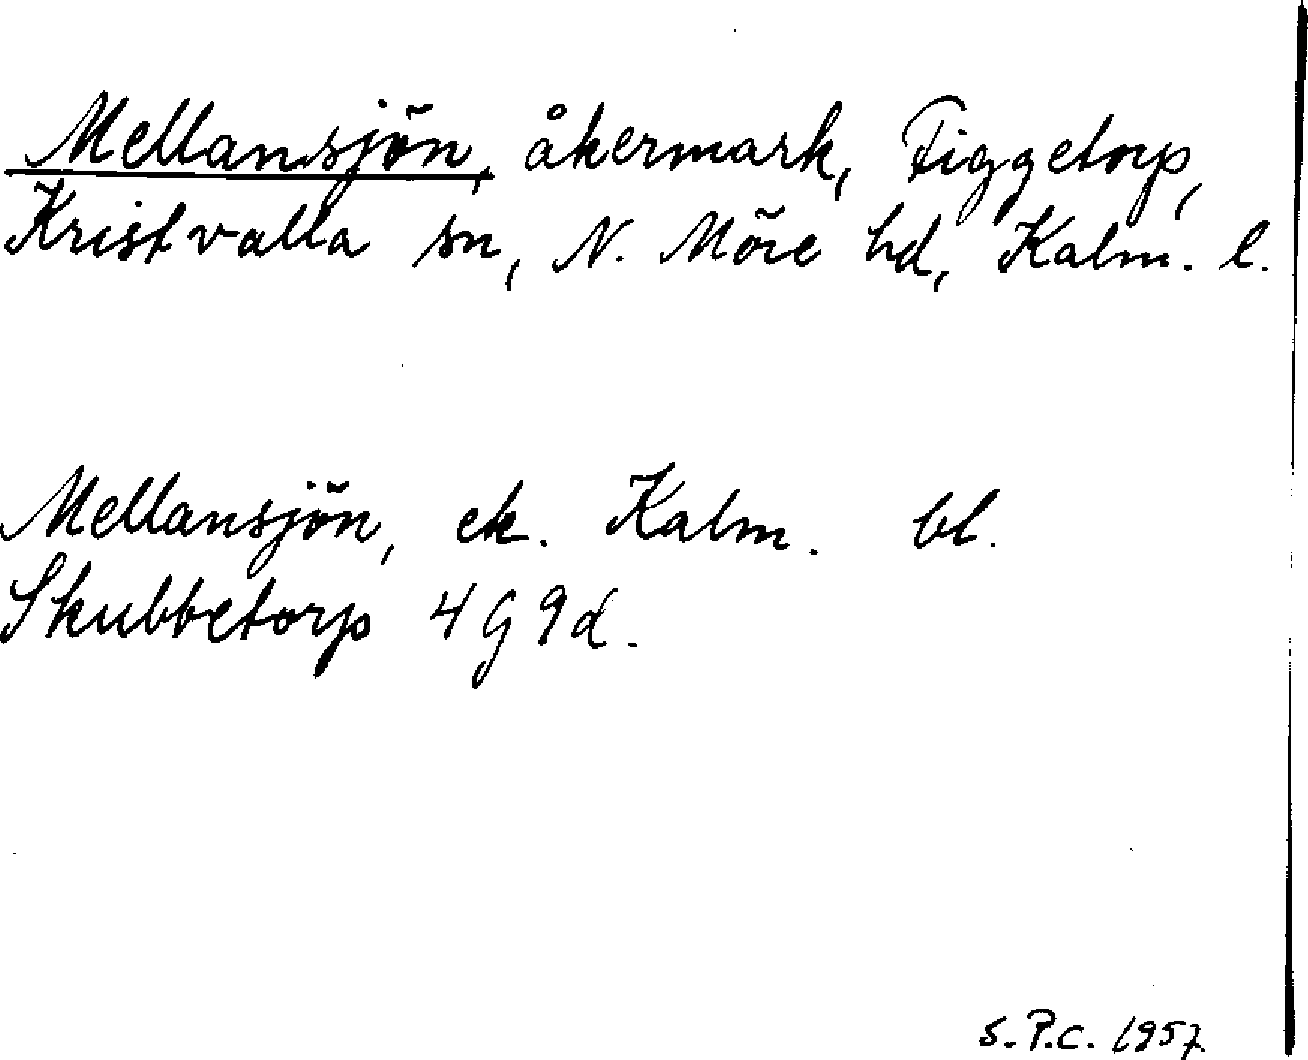 Mellansjön, åkermark, Figgetorp,
Kristvalla sn, N. Möre hd, Kalm. l.
Mellansjön, ek. Kalm. bl.
Skubbetorp 4 G 9 d.
S. P. C. 1957.